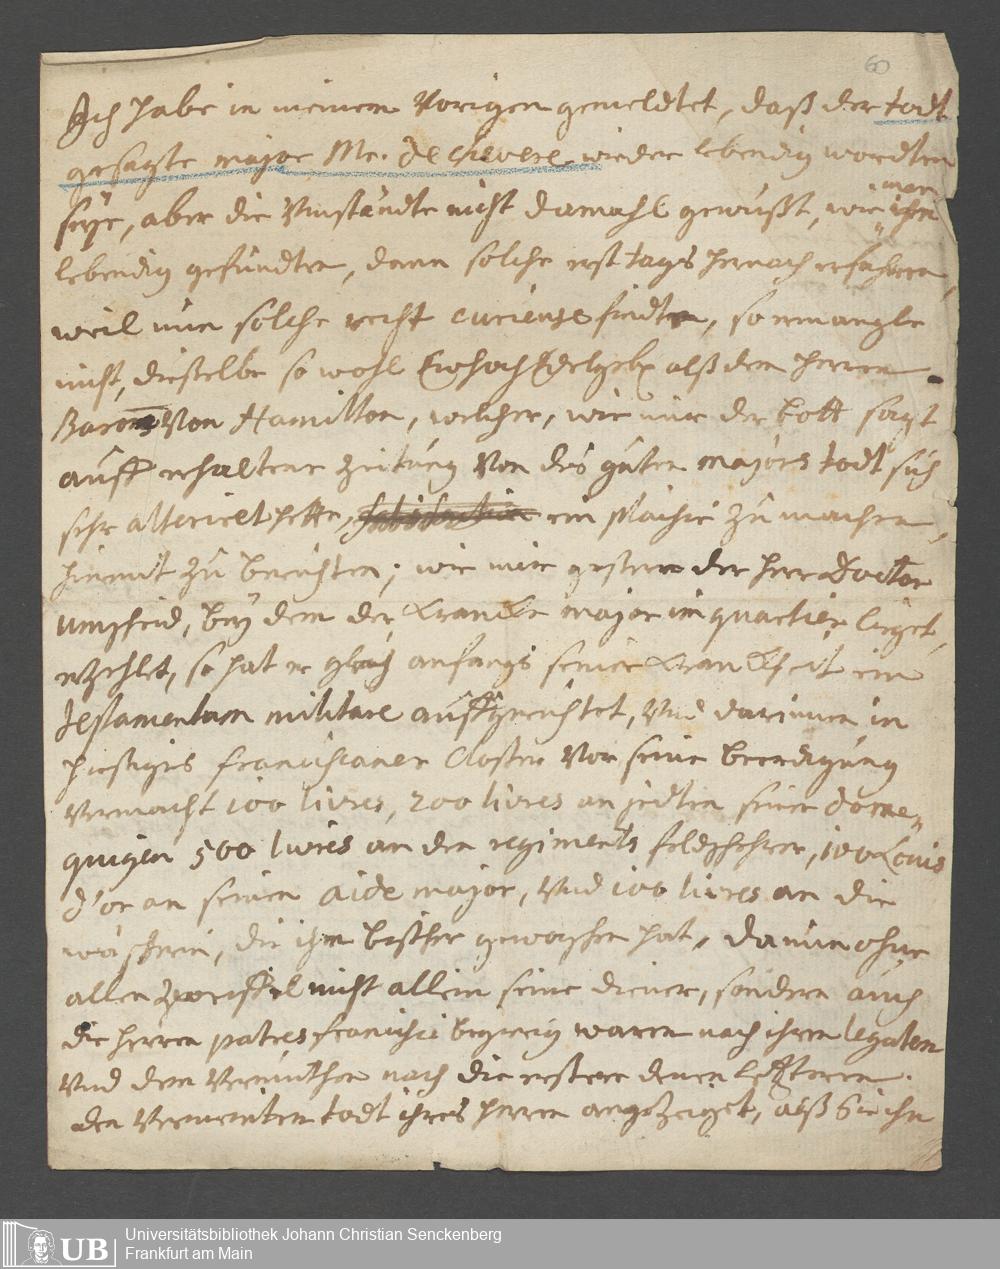 60
Ich habe in meinem Vorigen gemeldtet, daß der todt
gesagte major Mr. de wieder lebendig wordten
seÿe, aber die Umständte nicht damahl gewußt, wie man ihn
lebendig gefundten, dann solche erst tags hernach erfahren,
weil nun solche recht curieuse findte, so ermangle
nicht, dieselbe so wohl Ew hoch Edelgeb alß dem herren
Baron Von Hamilton, welcher, wie mir der bott sagt
auff erhaltene zeitung Von des guten majors todt sich
sehr alterirt hette, ein plaisir zu machen,
hiemit zu berichten; wie mir gestern der herr Doctor
Umpfeid, beÿ dem der Krancke major im quartier lieget,
erzehlet, so hat er gleich anfangs seiner Kranckheit ein
testamentum militare auffgerichtet, Vnd darinnen in
hiesiges franciscaner Closter Vor seine beerdigung
Vermacht 100 livres, 200 livres an jedten seiner dome-
quigen 500 livres an den regiments feldscherer, 100 Louis
d'or an seinen aide major, Vnd 100 livres an die
wäscherin, die ihm bisher gewaschen hat, da nun ohne
allen zweiffel nicht allein seine diener, sondern auch
die herren patres francisci begierig waren nach ihren legaten
Vnd dem Vermuthen nach die erstere denen letzteren
den Vermeinten todt ihres herren angezeiget, alß Sie ihn
UB
Universitätsbibliothek Johann Christian Senckenberg
Frankfurt am Main